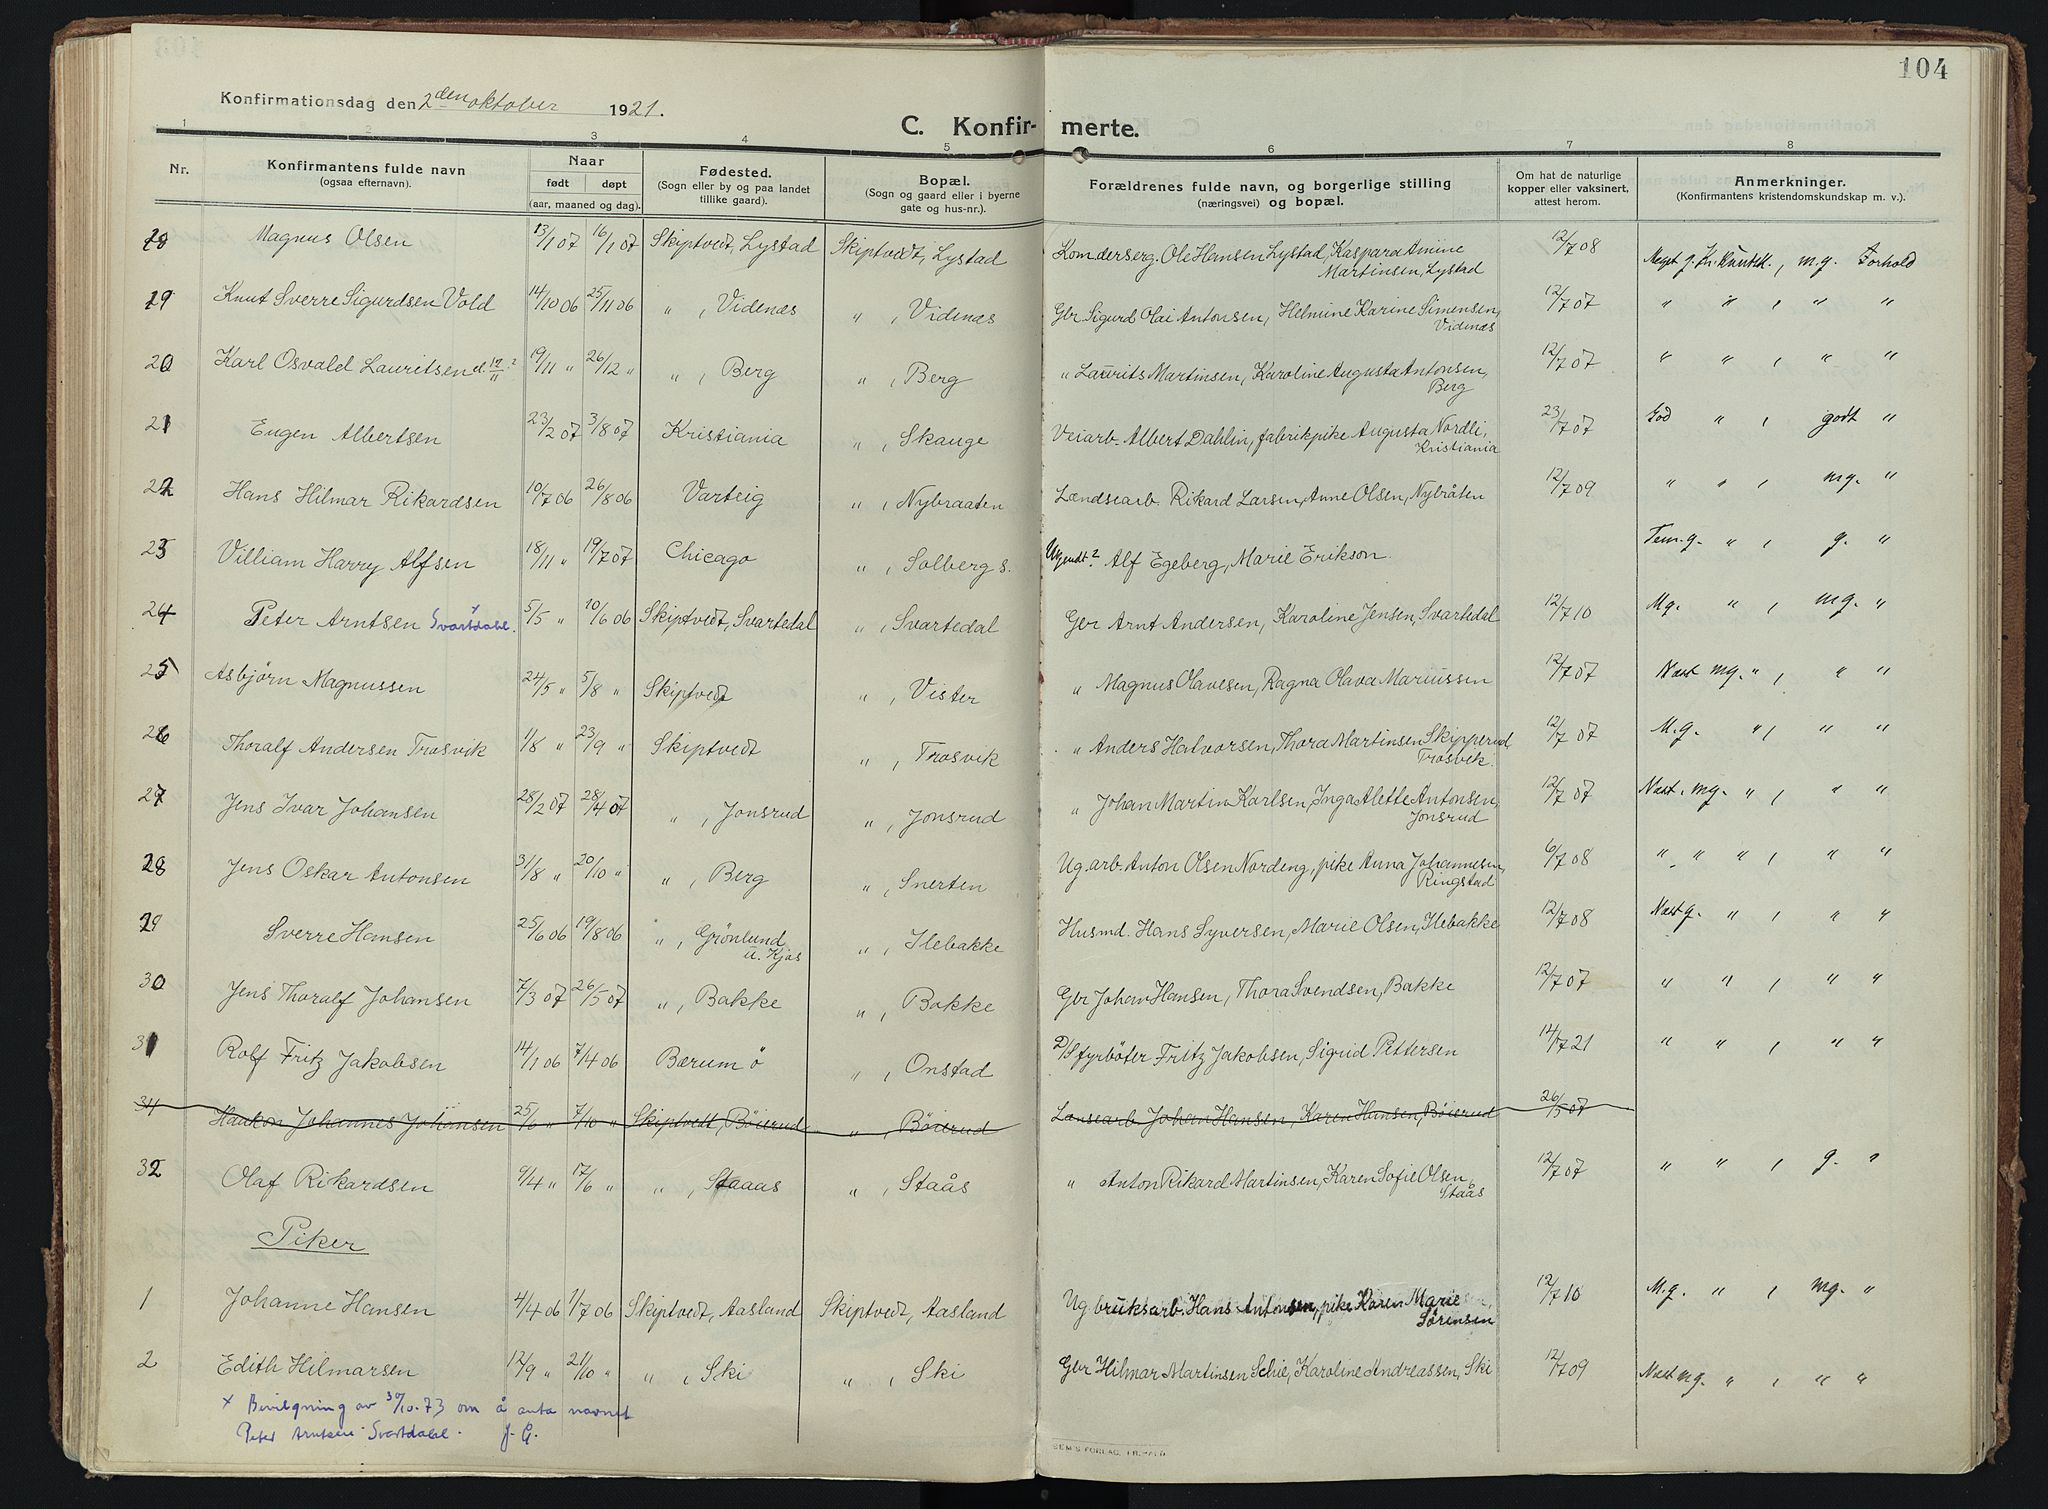 104
Konfirmationsdag den 2den oktober 1921.
C. Konfir- merte.
1 2 3 4 5 6 7 8
Nr. Konfirmantens fulde navn (ogsaa efternavn). Naar født døpt (aar, maaned og dag). Fødested. (Sogn eller by og paa landet tillike gaard). Bopæl. (Sogn og gaard eller i byerne gate og hus-nr.). Forældrenes fulde navn, og borgerlige stilling (næringsvei) og bopæl. Om hat de naturlige kopper eller vaksinert, attest herom. Anmerkninger. (Konfirmantens kristendomskundskap m. v.).
Magnus Olsen 13/1 07 16/1 07 Skiptvedt, Lystad Skiptvedt, Lystad Komdserg. Ole Hansen Lystad, Kaspara Amine 12/7 08 Meget g. Kr. kundsk., m.g. Forhold
Martinsen, Lystad
19 Knut Sverre Sigurdsen Vold 14/10 06 25/11 06 " , Videnæs " , Videnæs Gbr Sigurd Olai Antonsen, Helmine Karine Simensen, 12/7 07 " " , " "
Videnæs
20 Karl Osvald Lauritsen d. 12/11 ? 19/11 " 26/12 " " , Berg " , Berg " Laurits Martinsen, Karoline Augusta Antonsen, 12/7 07 " " , " "
Berg
21 Eugen Albertsen 23/2 07 3/8 07 Kristiania " , Skauge Veiarb. Albert Dahlin, fabrikpike Augusta Nordli, 23/7 07 God " , godt "
Kristiania
22 Hans Hilmar Rikardsen 10/7 06 26/8 06 Varteig " , Nybraaten Lændsearb. Rikard Larsen, Anne Olsen, Nybråten 12/7 09 " " , mg. "
23 Villiam Harry Alfsen 18/11 " 19/7 07 Chicago " , Solberg s. Ugendt? Alf Egeberg, Marie Erikson. Tem. g. " , g. "
24 Peter Arntsen Svartdahl. x 5/5 " 10/6 06 Skiptvedt, Svartedal " , Svartedal Gbr Arnt Andersen, Karoline Jensen, Svartedal 12/7 10 Mg. " , mg. "
25 Asbjørn Magnussen 24/5 " 5/8 " Skiptvedt " , Vister " Magnus Olavesen, Ragna Olava Mariussen 12/7 07 Næst mg. " , " "
26 Thoralf Andersen Trosvik 1/8 " 23/9 " Skiptvedt " , Trosvik " Anders Halvorsen, Thora Martinsen Skipperud 12/7 07 M.g. " , " "
Trosvik.
27 Jens Ivar Johansen 28/2 07 28/4 07 " , Jonsrud " , Jonsrud " Johan Martin Karlsen, Inga Alette Antonsen, 12/7 07 Næst. mg. " , " "
Jonsrud
28 Jens Oskar Antonsen 31/8 " 20/10 " " , Berg " , Snerten Ug. arb. Anton Olsen Nordeng, pike Anna Johannesen, 6/7 08 " " " , " "
Ringstad
29 Sverre Hansen 25/6 06 19/8 06 " , Grönlund u. Kjos " , Ilebakke Husmd. Hans Syversen, Marie Olsen, Ilebakke 12/7 08 Næst g. " , " "
30 Jens Thoralf Johansen 7/3 07 26/5 07 " , Bakke " , Bakke Gbr Johan Hansen, Thora Svendsen, Bakke 12/7 07 " " , " "
31 Rolf Fritz Jakobsen 14/1 06 7/4 06 Bærum ö " , Onstad D/S fyrböter Fritz Jakobsen, Sigrid Pettersen 14/7 21 " " , " "
31 Haakon Johannes Johansen 25/6 " 7/10 " Skiptvedt, Böierud " , Böierud Lænsearb. Johan Hansen, Karen Hansen, Böierud 26/5 07
32 Olaf Rikardsen 9/4 " 17/6 " " , Staaas " , Staås " Anton Rikard Martinsen, Karen Sofie Olsen, 12/7 07 " " , g. "
Staås
Piker
1 Johanne Hansen 4/4 06 1/7 06 Skiptvedt, Aasland Skiptvedt, Aasland Ug. bruksarb. Hans Antonsen, pike Karen Marie 12/7 10 M.g. " , mg. "
Sørensen
2 Edith Hilmarsen 12/9 " 21/10 " " , Ski " , Ski Gbr Hilmar Martinsen Schie, Karoline Andreassen, Ski 12/7 09 Næst mg. " , " "
x Bevilgning av 30/10-73 om å anta navnet
Peter Arntsen Svartdahl. J. G.
SEM'S FORLAG, FR.HALD